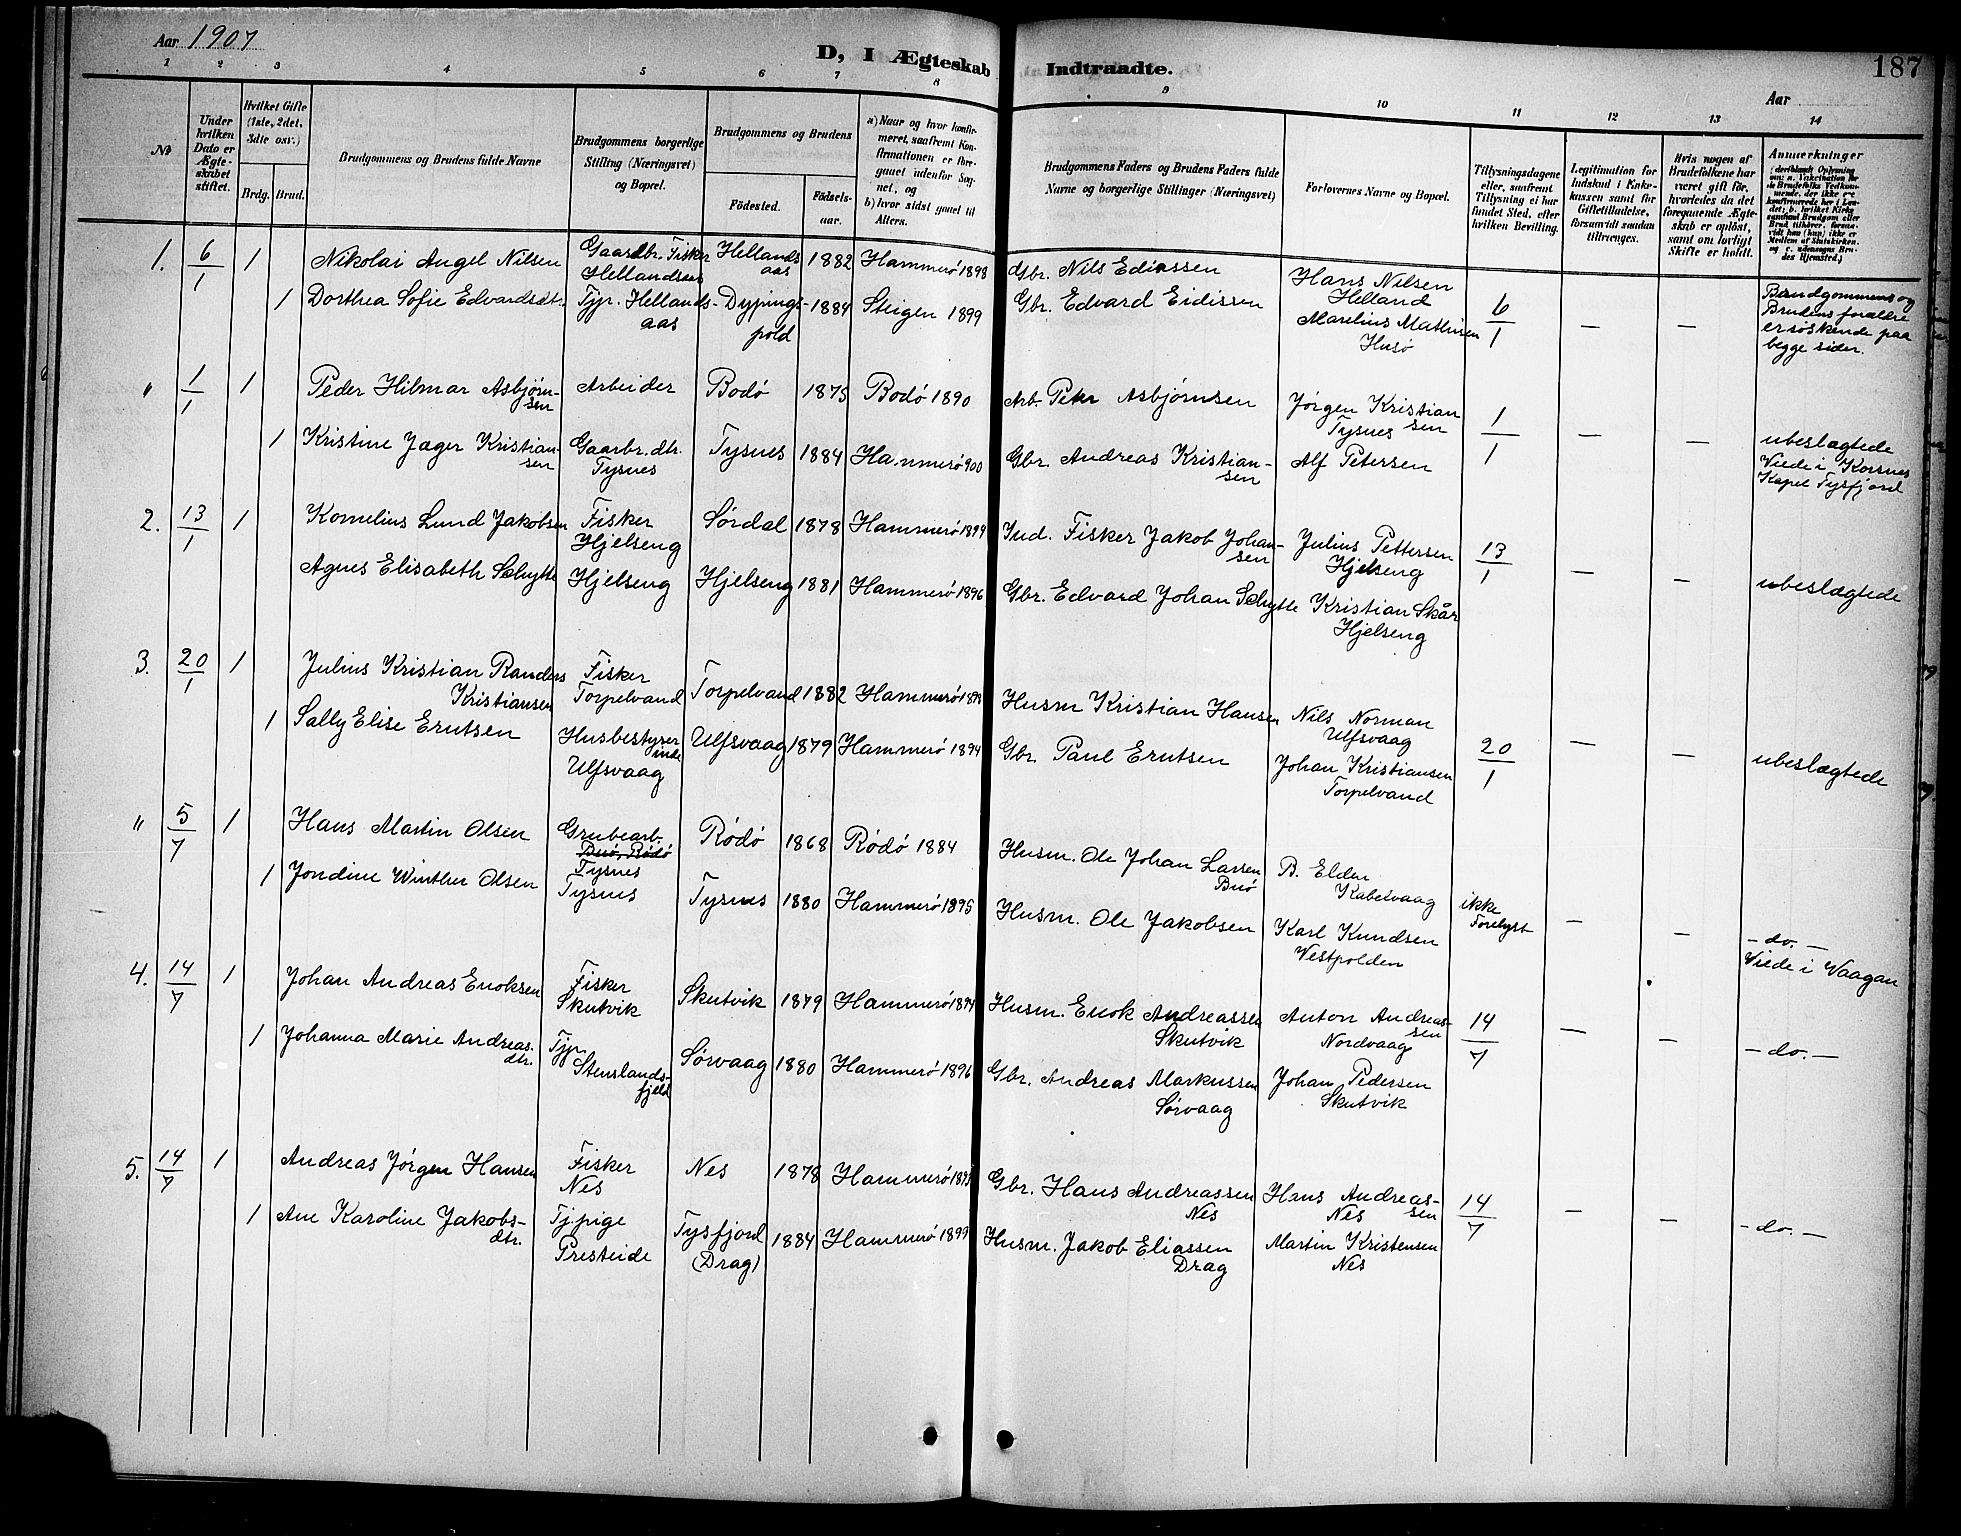 Aar 1907
D, I Ægteskab Indtraadte.
187
Aar
1 2 3 4 5 6 7 8 9 10 11 12 13 14
No
Under hvilken Dato er Ægteskabet stiftet.
Hvilket Gifte (1ste, 2det, 3die osv.)
Brdg. Brud.
Brudgommens og Brudens fulde Navne
Brudgommens borgerlige Stilling (Næringsvei) og Bopæl.
Brudgommens og Brudens
Fødested. Fødselsaar.
a) Naar og hvor konfirmeret, saafremt Konfirmationen er foregaaet udenfor Sognet, og
b) hvor sidst gaaet til Alters.
Brudgommens Faders og Brudens Faders fulde Navne og borgerlige Stillinger (Næringsvei)
Forlovernes Navne og Bopæl.
Tillysningsdagene eller, saafremt Tillysning ei har fundet Sted, efter hvilken Bevilling.
Legitimation for Indskud i Enkekassen samt for Giftetilladelse, forsaavidt saadan tiltrænges.
Hvis nogen af Brudefolkene har været gift før, hvorledes da det foregaaende Ægteskab er opløst, samt om lovligt Skifte er holdt.
Anmerkninger
1. 6/1 1 Nikolai Angel Nilsen Gaardbr. Fisker Hellandsaas Hellandsaas 1882 Hammerø 1898 Gbr. Nils Ediassen Hans Nilsen Helland 6/1 — — Brudgommens og Brudens forældre er søskende paa begge sider.
1 Dorthea Sofie Edvardsdt. Tjp. Hellandsaas Dypingspold 1884 Steigen 1899 Gbr. Edvard Eidissen Marelius Mathisen Husø
" 1/1 1 Peder Hilmar Asbjørnsen Arbeider Bodø 1875 Bodø 1890 Arb. Peter Asbjørnsen Jørgen Kristiansen Tysnes 1/1 — — ubeslægtede Viede i Korsnes Kapel Tysfjord
1 Kristine Jæger Kristiansen Gaarbr. dtr. Tysnes Tysnes 1884 Hammerø 900 Gbr. Andreas Kristiansen Alf Petersen
2. 13/1 1 Kornelius Lund Jakobsen Fisker Hjelseng Sørdal 1878 Hammerø 1894 Ind. Fisker Jakob Johansen Julius Pettersen Hjelseng 13/1 — — ubeslægtede
Agnes Elisabeth Schytte Hjelseng Hjelseng 1881 Hammerø 1896 Gbr. Edvard Johan Schytte Kristian Skår Hjelseng
3. 20/1 1 Julius Kristian Randers Kristiansen Fisker Torpelvand Torpelvand 1882 Hammerø Husm Kristian Hansen Nils Norman Ulfsvaag 20/1 — — ubeslægtede
1 Sally Elise Erntsen Husbestyrerinde Ulfsvaag Ulfsvaag 1879 Hammerø 1894 Gbr. Paul Erntsen Johan Kristiansen Torpelvand
" 5/7 1 Hans Martin Olsen Grubearb. Tysnes Rødø 1868 Rødø 1884 Husm. Ole Johan Larsen Buø B. Elden Kabelvaag ikke Forelyst — — — do. — Viede i Vaagan
1 Jondine Winther Olsen Tysnes Tysnes 1880 Hammerø 1895 Husm. Ole Jakobsen Karl Knudsen Vestpolden
4. 14/7 1 Johan Andreas Enoksen Fisker Skutvik Skutvik 1879 Hammerø 1894 Husm. Enok Andreassen Skutvik Anton Andreassen Nordvaag 14/7 — — — do. —
1 Johanna Marie Andreasdtr. Tjp. Stenslandsfjeld Sørvaag 1880 Hammerø 1896 Gbr. Andreas Markussen Sørvaag Johan Pedersen Skutvik
5. 14/7 1 Andreas Jørgen Hansen Fisker Nes Nes 1878 Hammerø Gbr. Hans Andreassen Nes Hans Andreassen Nes 14/7 — — — do. —
1 Ane Karoline Jakobsdtr. Tjpige Presteide Tysfjord (Drag) 1884 Hammerø 1899 Husm. Jakob Eliassen Drag Martin Kristensen Nes